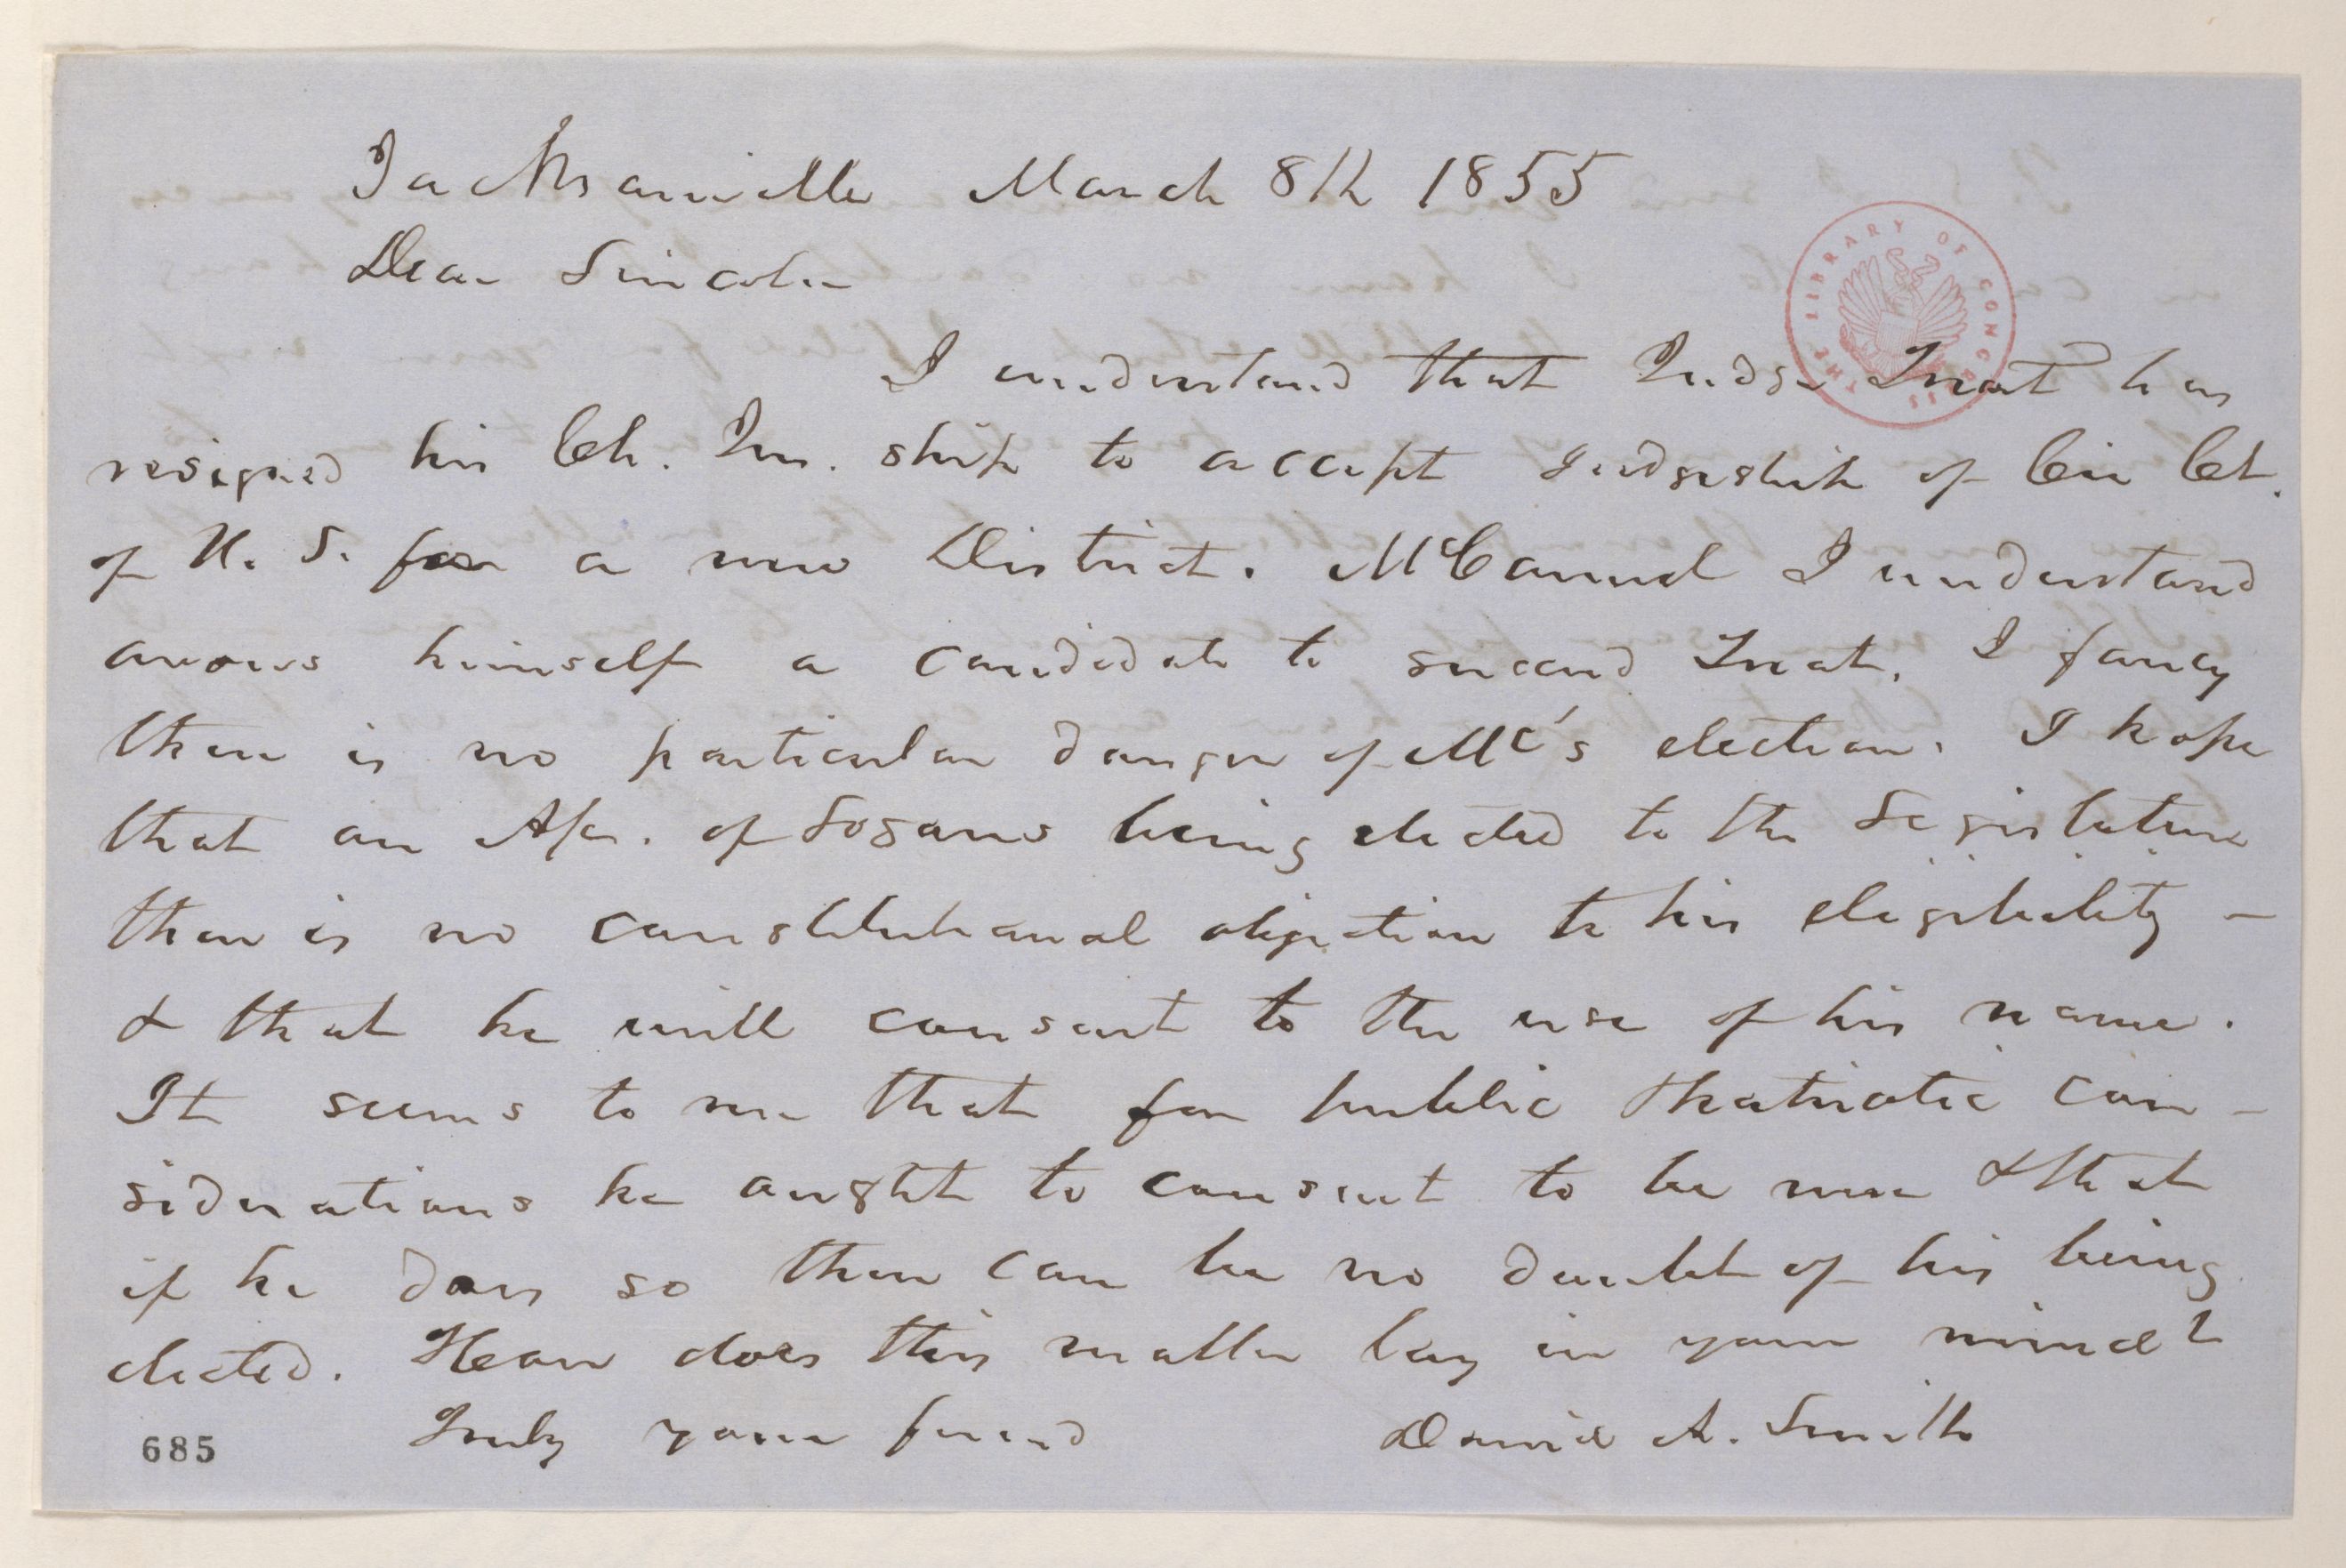 Jacksonville March 8th 1855
Dear Lincoln
I understand that Judge Treat has
resigned his Ch. Jus. ship to accept Judgeship of Cir Ct.
of U. S. for a new District. McConnel I understand
avows himself a candidate to succeed Treat. I fancy
there is no particular danger of Mc's election. I hope
that on A/c. of Logans being elected to the Legislature
there is no constitutional objection to his eligibility -
& that he will consent to the use of his name.
It seems to me that for public & patriotic con-
siderations he aught to consent to be run & that
if he does so there can be no doubt of his being
elected. How does this matter lay in your mind?
Truly your friend David A. Smith
685
THE LIBRARY OF CONGRESS